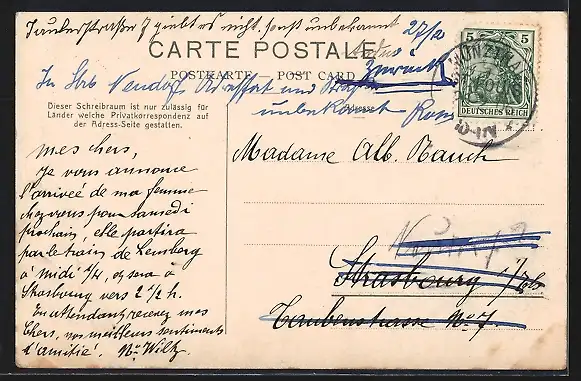 Tauberstraße 7 giebt es nicht. sonst unbekannt 27/2
CARTE POSTALE
POSTKARTE POST CARD
Zurück
In Stb Neudorf Ruprecht und
unbekannt
Dieser Schreibraum ist nur zulässig für
Länder welche Privatkorrespondenz auf
der Adress-Seite gestatten.
Adresse
5 5
DEUTSCHES REICH
Madame Alb. Rauch
Strasbourg i/Els
Taubenstrasse No 7.
mes chers,
Je vous annonce
l'arriveé de ma femme
chez vous pour samedi
prochain, elle partira
par le train de Lemberg
à midi 1/4, et sera à
Strasbourg vers 2 1/2 h.
En attendant, recevez mes
Chers, nos meilleurs sentiments
d'amitié. Wiltz